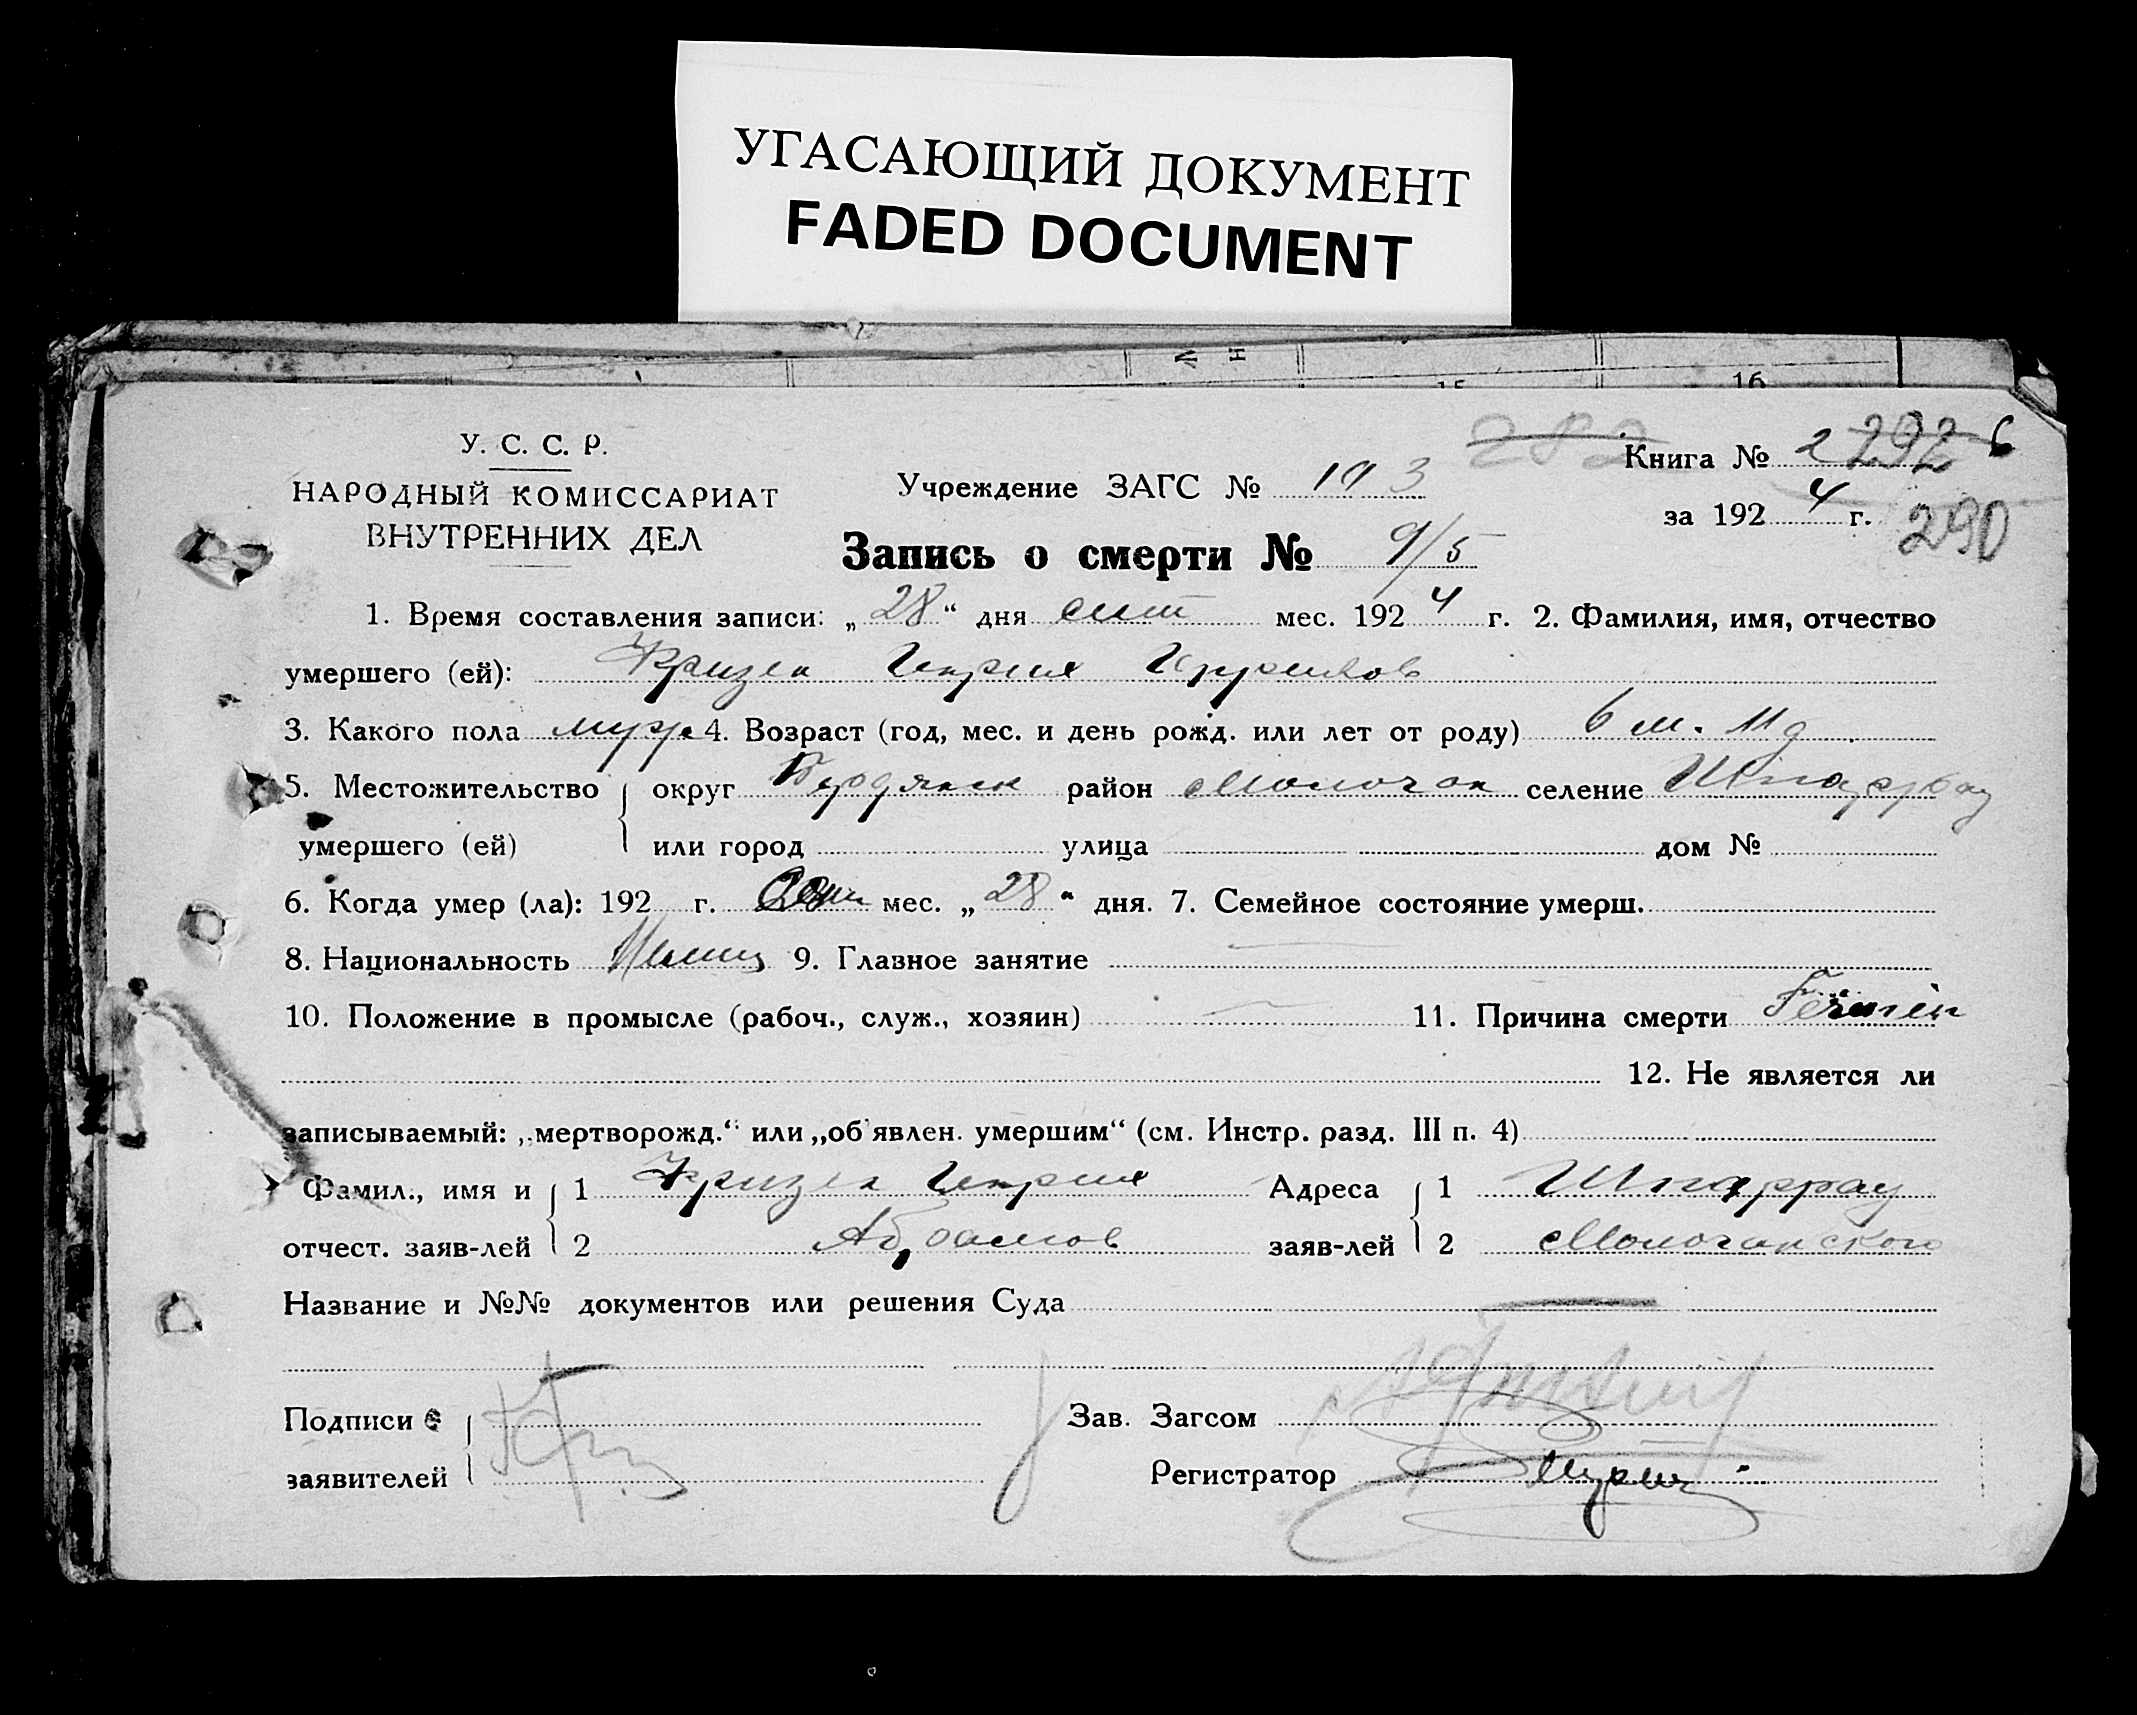 УГАСАЮЩИЙ ДОКУМЕНТ
FADED DOCUMENT
16
У. С. С. Р.
НАРОДНЫЙ КОМИССАРИАТ
ВНУТРЕННИХ ДЕЛ
282
Книга № 2 292 6
Учреждение ЗАГС № 193
за 1924 г. 290
Запись о смерти № 9/5
1. Время составления записи: „28“ дня сент мес. 1924 г. 2. Фамилия, имя, отчество
умершего (ей): Фризен Генрих
3. Какого пола муж. 4. Возраст (год, мес. и день рожд. или лет от роду) 6 м. 11 д
5. Местожительство округ Бердянск район Молочан селение Шпаррау
умершего (ей) или город улица дом №
6. Когда умер (ла): 192 г. Сент мес. „28“ дня. 7. Семейное состояние умерш.
8. Национальность Немец 9. Главное занятие —
10. Положение в промысле (рабоч., служ., хозяин) — 11. Причина смерти
12. Не является ли
записываемый: „мертворожд.“ или „об'явлен. умершим“ (см. Инстр. разд. III п. 4)
Фамил., имя и 1 Фризен Генрих Адреса 1 Шпаррау
отчест. заяв-лей 2 Абрамов заяв-лей 2 Молочанского
Название и №№ документов или решения Суда —
Подписи Зав. Загсом
заявителей Регистратор